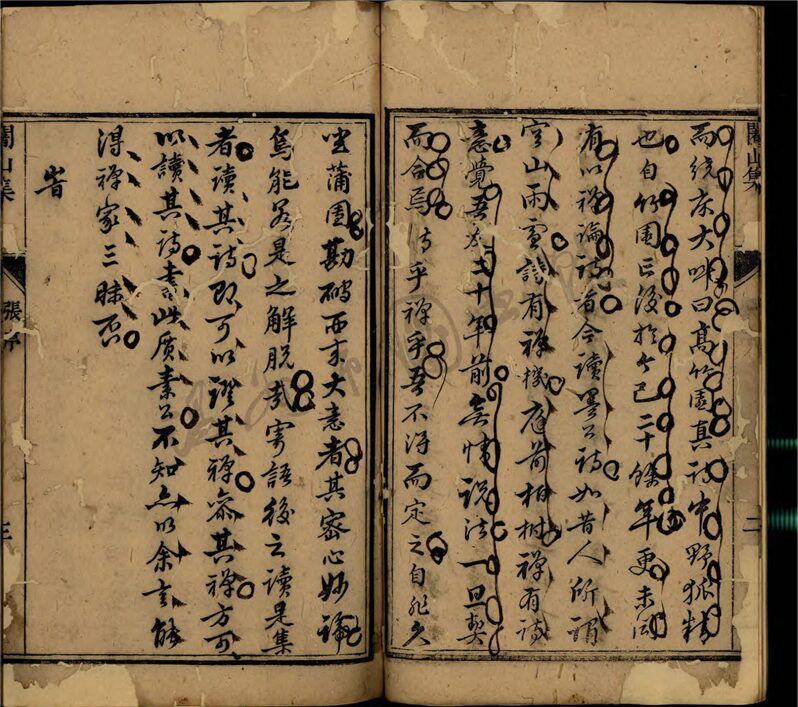 而繞床大呼曰高竹園真詩中野狐精
也自竹園云後於今已二十餘年更未聞
有以禪論詩者今讀墨公詩如昔人所謂
空山雨雪詩有禪機庭前柏樹禪有詩
意覺吾於二十年前無情說法一旦契
而合焉詩乎禪乎吾不得而定之自非久
坐蒲團勘破西來大意者其密心妙諦
烏能若是之解脫哉寄語後之讀是集
者讀其詩即可以證其禪參其禪方可
以讀其詩書此質素公不知亦以余言能
得禪家三昧否
峕
閣山集
二
閣山集
張序
三